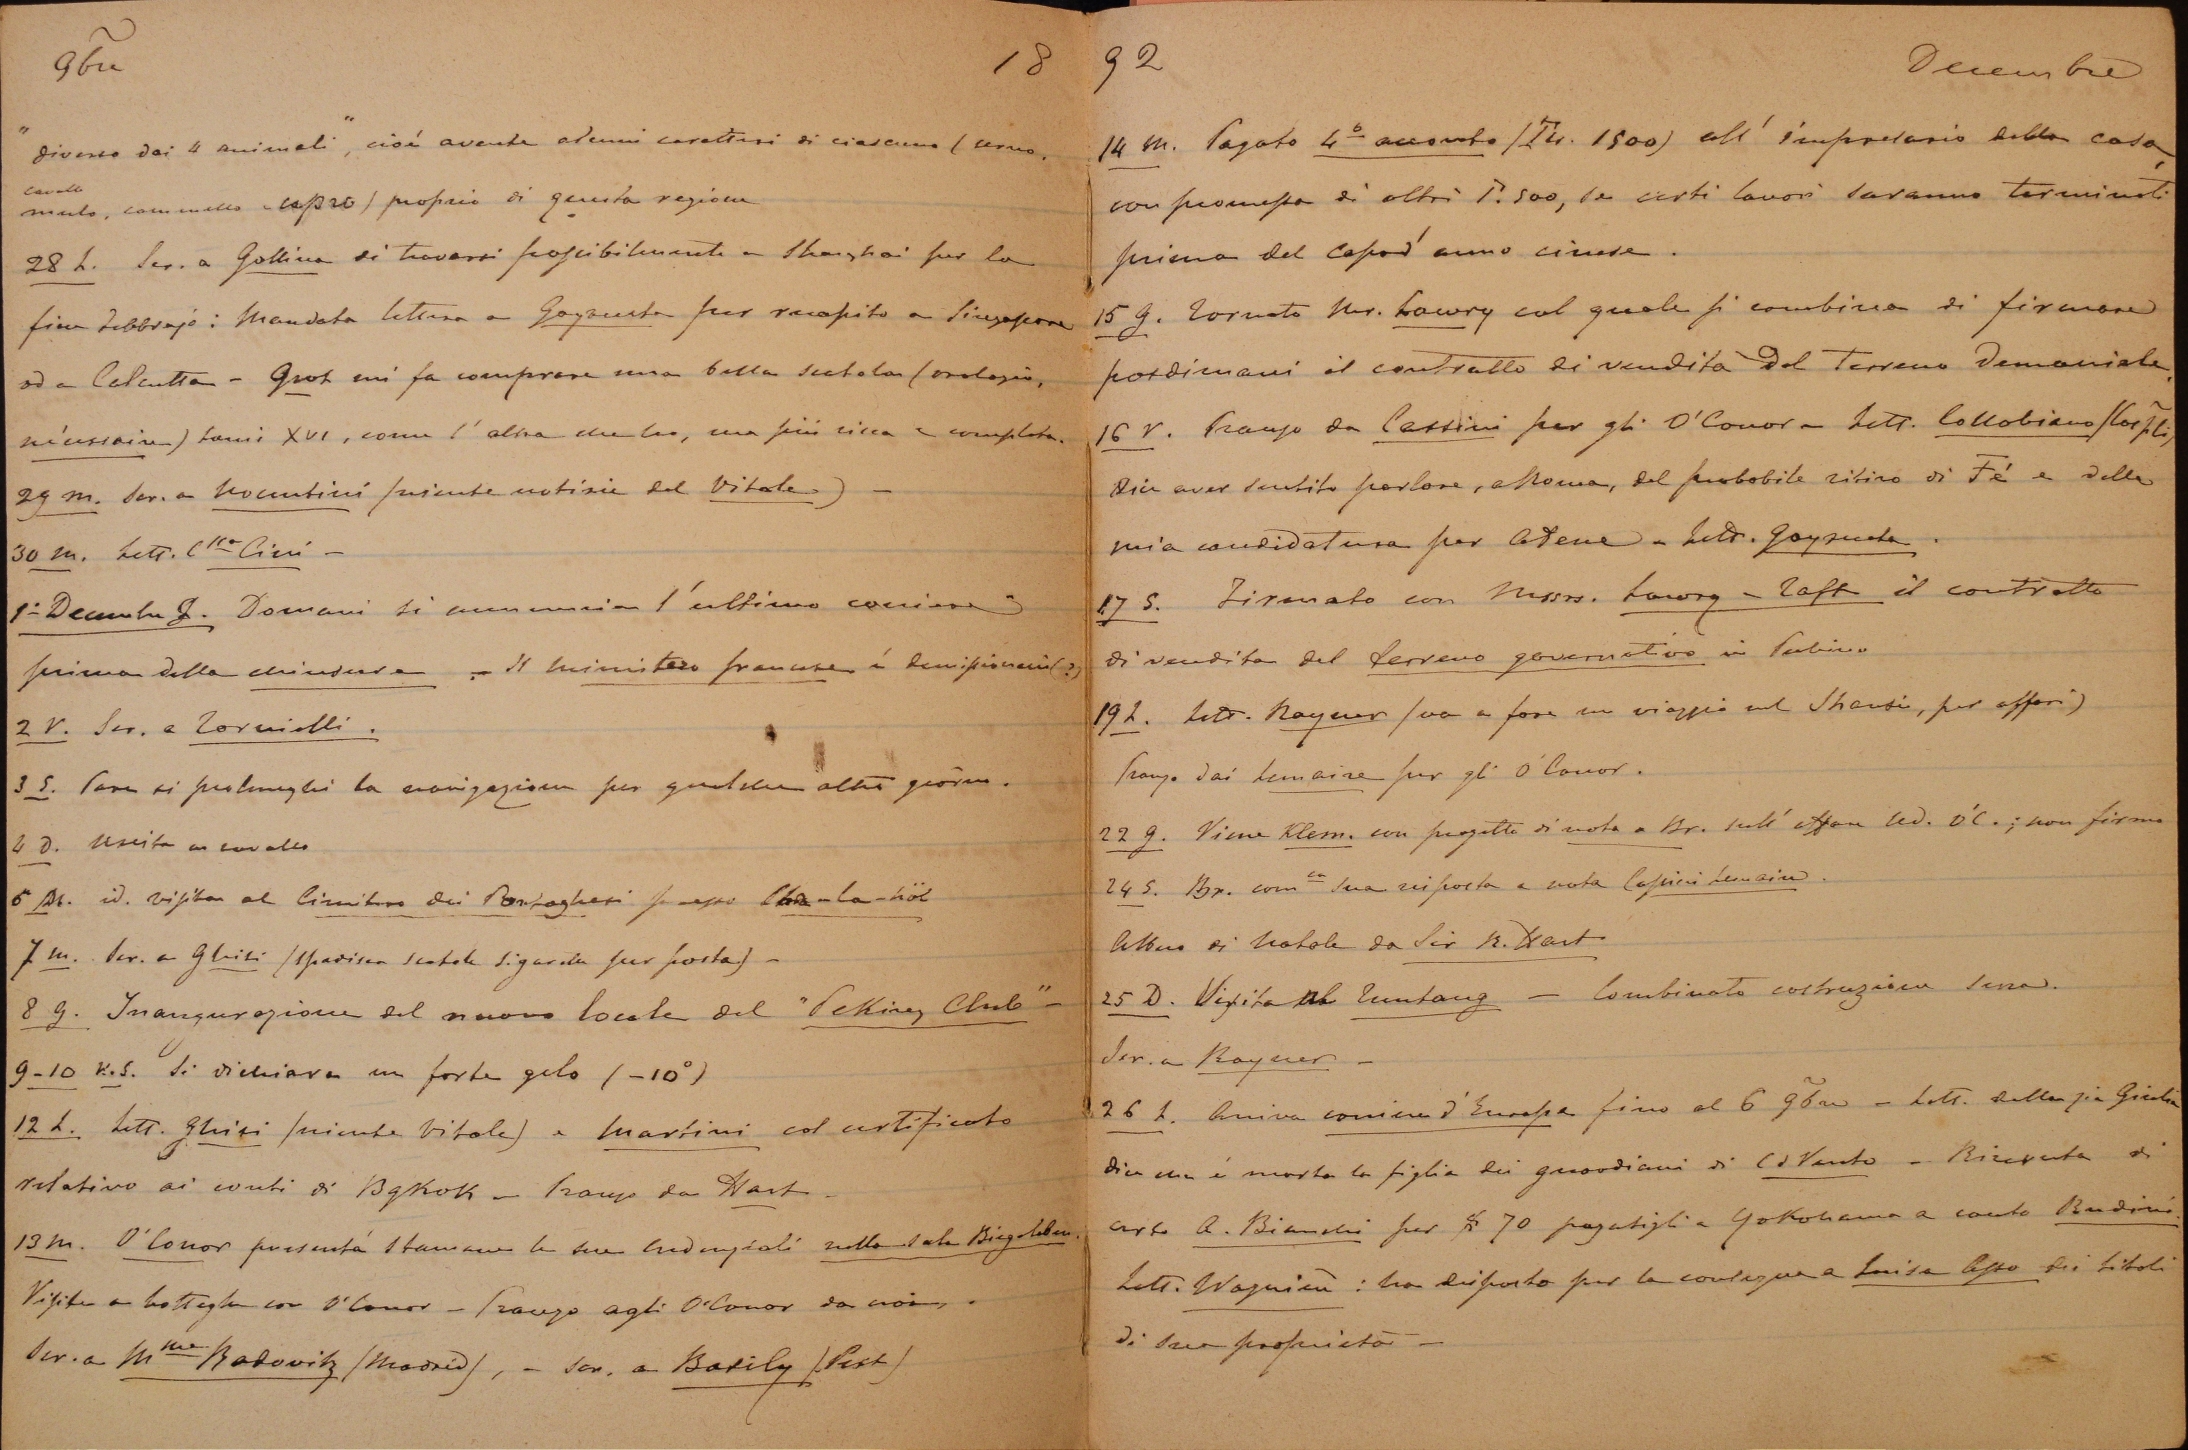 9bre
18
"diverso dai 4 animali", cioé avente alcuni caratteri di ciascuno (cervo,
cavallo
mulo, cammello capro) proprio di questa regione
28 L. Scr. a Gallina di trovarsi possibilmente a Shanghai per la
fine febbrajo: Mandata lettera a Goyzueta per recapito a Singapore
od a Calcutta - Grot mi fa comprare una bella scatola (orologio,
nécessaire) Louis XVI, come l'altra che ho, ma più ricca e completa.
29 M. Scr. a Nocentini (niente notizie del Vitale) -
30 M. Lett. Cssa Cini -
1° Decembre G. Domani si annunzia l'ultimo corriere
prima della chiusura - Il ministro francese é dimissionario (?)
2 V. Scr. a Tornielli.
3 S. Pare si prolunghi la navigazione per qualche altro giorno.
4 D. Uscita a cavallo
6 M. id. visita al Cimitero dei Portoghesi presso
7 M. Scr. a Ghisi (spedisca scatole sigarette per posta) -
8 G. Inaugurazione del nuovo locale del "Peking Club" -
9-10 V.S. Si dichiara un forte gelo (-10°)
12 L. Lett. Ghisi (niente Vitale) e Martini col certificato
relativo ai conti di BgKoK - Pranzo da Hart -
13 M. O'Conor presentá stamane le sue credenziali nella sala Biegeleben.
Visite a botteghe con O'Conor - Pranzo agli O'Conor da noi.
Scr. a Mme Radowitz (Madrid), - Scr. a Basily (Pest)
92
Decembre
14 M. Pagato 4° acconto (Tls. 1500) all'impresario della casa,
con promessa di altri T. 500, se certi lavori saranno terminati
prima del capod'anno cinese.
15 G. Tornato Mr. Lowry col quale si combina di firmare
posdimani il contratto di vendita del terreno demaniale.
16 V. Pranzo da Cassini per gli O'Conor - Lett. Collobiano (Cospli)
dice aver sentito parlare, a Roma, del probabile ritiro di Fé e della
mia candidatura per Atene - Lett. Goyzueta.
17 S. Firmato con Messrs. Lowry - Taft il contratto
di vendita del terreno governativo in Pechino
19 L. Lett. Rayner (va a fare un viaggio nel Shansi, per affari)
Pranzo dai Lemaire per gli O'Conor.
22 G. Viene Klem. con progetto di nota a Br. sull'affare O'C.; non firmo
24 S. Br. comca sua risposta a nota Cassini Lemaire.
Albero di Natale da Sir R. Hart
25 D. Visita al Zuntang - Combinato costruzione serra.
Scr. a Rayner -
26 L. Arriva corriere d'Europa fino al 6 9bre - Lett. della zia Giulia
dice che é morta la figlia dei guardiani di - Ricevuta di
certo A. Bianchi per $ 70 pagatigli a Yokohama a conto Rudini.
Lett. Wagnière: ha disposto per la consegna a Luisa dei titoli
di sua proprietà -